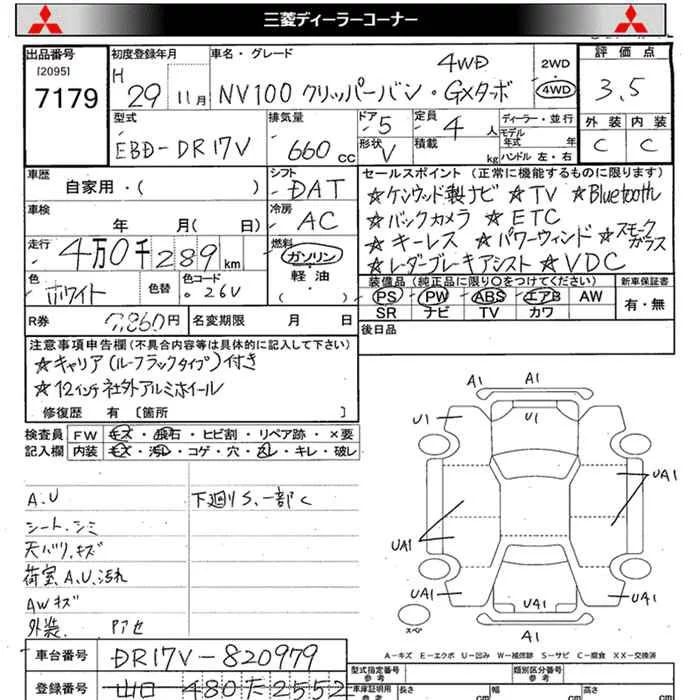 三菱ディーラーコーナー
出品番号
[2095]
7179
初度登録年月
H 29 11月
車名・グレード
4WD
NV100 クリッパーバン・GXターボ
2WD
4WD
評価点
3.5
外装 内装
C C
型式
EBD-DR17V
排気量
660 cc
ドア 5
形状 V
定員 4 人
積載 kg
ディーラー・並行
モデル年式 年
ハンドル 左・右
車歴
自家用・( )
シフト
DAT
車検
年 月( 日)
冷房
AC
走行
4万0千289 km
燃料
ガソリン
軽油
( ・ )
色
ホワイト
色替
色コード
26U
セールスポイント (正常に機能するものに限ります)
☆ケンウッド製ナビ ☆TV ☆Bluetooth
☆バックカメラ ☆ETC
☆キーレス ☆パワーウィンド ☆スモークガラス
☆レーダーブレーキアシスト ☆VDC
装備品 (純正品に限り○をつけてください)
PS PW ABS エアB AW
SR ナビ TV カワ
新車保証書
有・無
R券
7,860円
名変期限 月 日
後日品
注意事項申告欄 (不具合内容等は具体的に記入して下さい)
☆キャリア(ルーフラックタイプ)付き
☆12インチ社外アルミホイール
修復歴 有 〔箇所 〕
検査員記入欄
FW キズ・飛石・ヒビ割・リペア跡・×要
内装 キズ・汚レ・コゲ・穴・スレ・キレ・破レ
A.U
シート.シミ
天バリ.キズ
荷室A.U.汚れ
AWキズ
外装.
下廻りS.一部C
A1
A1
U1
U1
UA1
UA1
UA1
UA1
UA1
A1
スペア
A-キズ E-エクボ U-凹み W-補修跡 S-サビ C-腐食 XX-交換済
車台番号
DR17V-820979
登録番号
山口 480 た 2552
型式指定番号
参考
類別区分番号
参考
車庫証明用
参考
長さ cm
幅 cm
高さ cm